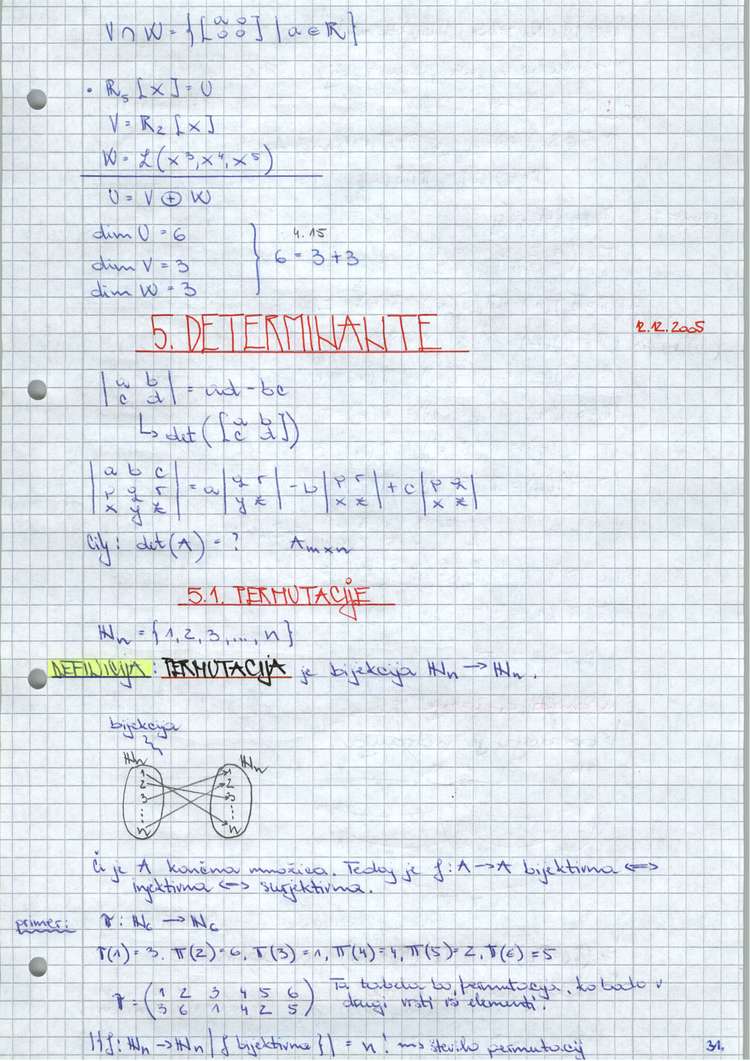 V ∩ W = {[a 0 0 0] | a ∈ ℝ}
• ℝ₅[x] = U
V = ℝ₂[x]
W = ℒ(x³, x⁴, x⁵)
U = V ⊕ W
dim U = 6
4.15
dim V = 3
6 = 3 + 3
dim W = 3
5. DETERMINANTE
12.12.2005
|a b c d| = ad - bc
↳ det([a b c d])
|a b c
p q r
x y z| = a |q r y z| - b |p r x z| + c |p q x y|
Cilj: det(A) = ? A m×n
5.1. PERMUTACIJE
ℕₙ = {1, 2, 3, ..., n}
DEFINICIJA: PERMUTACIJA je bijekcija ℕₙ → ℕₙ.
bijekcija
ℕₙ ℕₙ
1 1
2 2
3 3
n n
Či je A končna množica. Tedaj je f: A → A bijektivna ⟺
injektivna ⟺ surjektivna.
primer: π: ℕ₆ → ℕ₆
π(1) = 3, π(2) = 6, π(3) = 1, π(4) = 4, π(5) = 2, π(6) = 5
π = (1 2 3 4 5 6
3 6 1 4 2 5)
Ta tabela bo permutacija, ko bodo v
drugi vrsti isti elementi.
|{f: ℕₙ → ℕₙ | f bijektivna}| = n! ⇝ število permutacij
31.